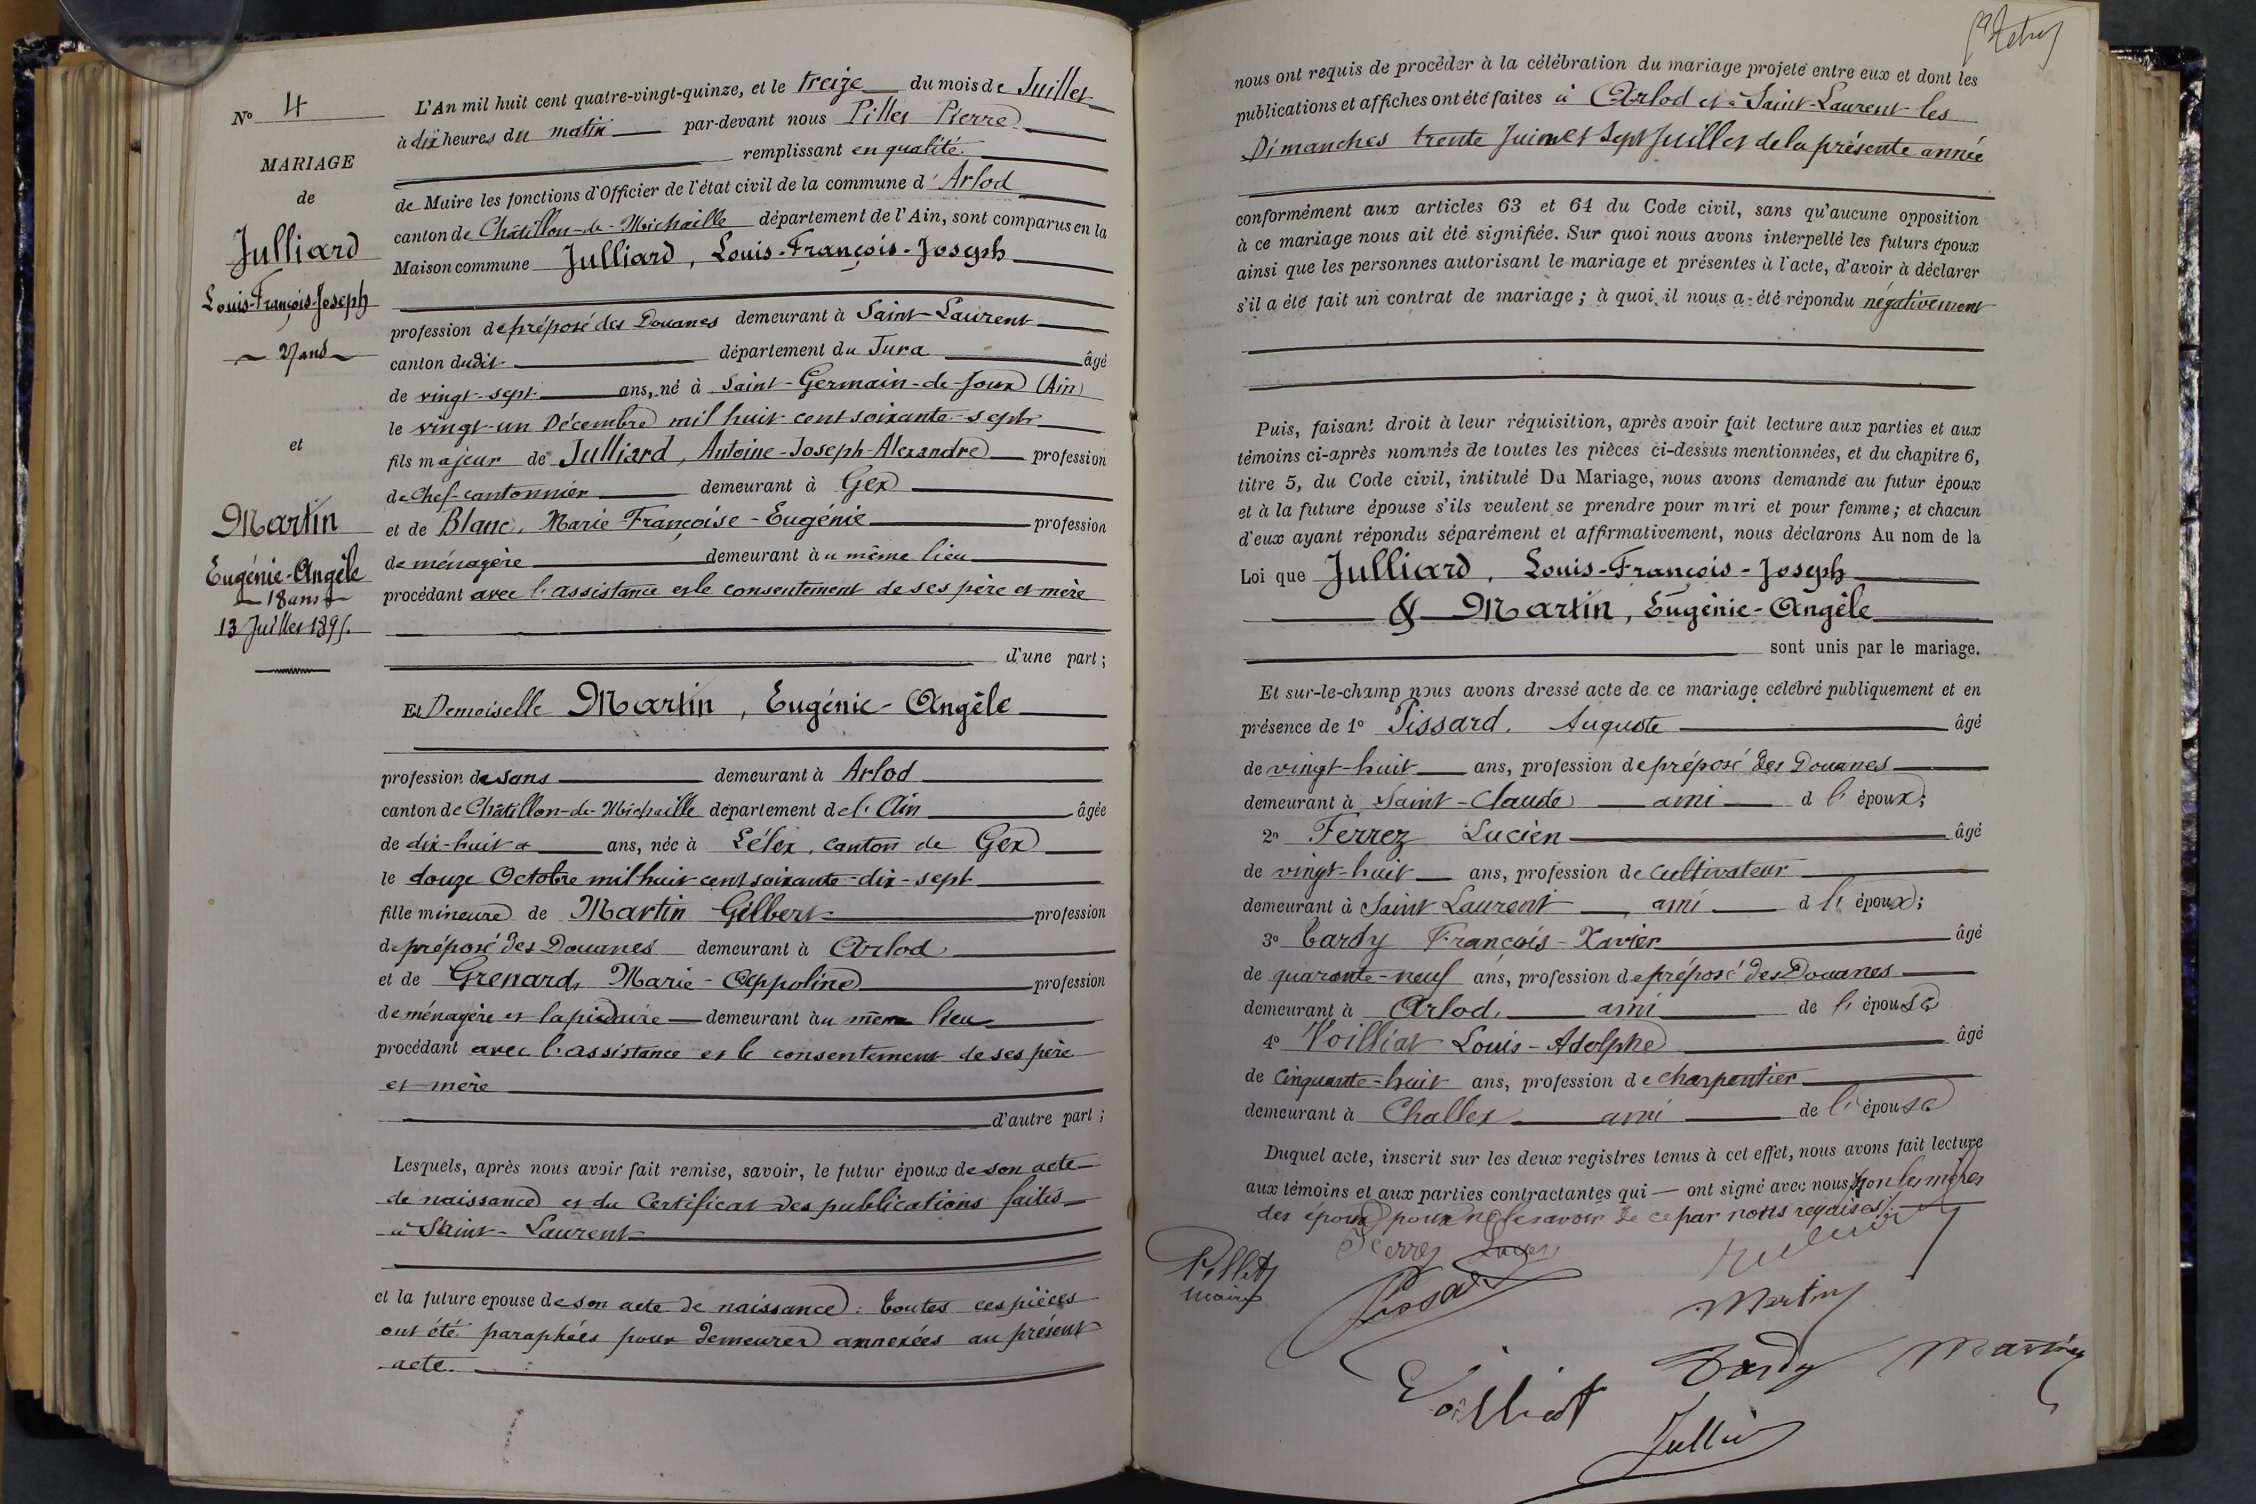 N° 4
MARIAGE
de
Julliard
Louis-François-Joseph
27 ans
et
Martin
Eugénie-Angèle
18 ans
13 Juillet 1895.
L'An mil huit cent quatre-vingt-quinze, et le treize du mois de Juillet
à dix heures du matin par-devant nous Pillet Pierre
remplissant en qualité
de Maire les fonctions d'Officier de l'état civil de la commune d'Arlod
canton de Châtillon-de-Michaille département de l'Ain, sont comparus en la
Maison commune Julliard, Louis-François-Joseph
profession de préposé des Douanes demeurant à Saint-Laurent
canton dudit département du Jura âgé
de vingt-sept ans, né à Saint-Germain-de-Joux (Ain)
le vingt-un Décembre mil huit cent soixante-sept
fils majeur de Julliard, Antoine-Joseph-Alexandre profession
de Chef-cantonnier demeurant à Gex
et de Blanc, Marie-Françoise-Eugénie profession
de ménagère demeurant au même lieu
procédant avec l'assistance et le consentement de ses père et mère
d'une part;
Et Demoiselle Martin, Eugénie-Angèle
profession de sans demeurant à Arlod
canton de Châtillon-de-Michaille département de l'Ain âgée
de dix-huit ans, née à Lélex, canton de Gex
le douze Octobre mil huit cent soixante-dix-sept
fille mineure de Martin Gilbert profession
de préposé des Douanes demeurant à Arlod
et de Grenard, Marie-Appoline profession
de ménagère et lapidaire demeurant au même lieu
procédant avec l'assistance et le consentement de ses père
et mère
d'autre part;
Lesquels, après nous avoir fait remise, savoir, le futur époux de son acte
de naissance et du Certificat des publications faites
à Saint-Laurent
et la future épouse de son acte de naissance: toutes ces pièces
ont été paraphées pour demeurer annexées au présent
acte.
nous ont requis de procéder à la célébration du mariage projeté entre eux et dont les
publications et affiches ont été faites à Arlod et à Saint-Laurent les
Dimanches trente Juin et Sept Juillet de la présente année
conformément aux articles 63 et 64 du Code civil, sans qu'aucune opposition
à ce mariage nous ait été signifiée. Sur quoi nous avons interpellé les futurs époux
ainsi que les personnes autorisant le mariage et présentes à l'acte, d'avoir à déclarer
s'il a été fait un contrat de mariage; à quoi il nous a été répondu négativement
Puis, faisant droit à leur réquisition, après avoir fait lecture aux parties et aux
témoins ci-après nommés de toutes les pièces ci-dessus mentionnées, et du chapitre 6,
titre 5, du Code civil, intitulé Du Mariage, nous avons demandé au futur époux
et à la future épouse s'ils veulent se prendre pour mari et pour femme; et chacun
d'eux ayant répondu séparément et affirmativement, nous déclarons Au nom de la
Loi que Julliard, Louis-François-Joseph
& Martin, Eugénie-Angèle
sont unis par le mariage.
Et sur-le-champ nous avons dressé acte de ce mariage célébré publiquement et en
présence de 1° Pissard, Auguste âgé
de vingt-huit ans, profession de préposé des Douanes
demeurant à Saint-Claude ami d l'époux;
2° Ferrez Lucien âgé
de vingt-huit ans, profession de cultivateur
demeurant à Saint Laurent ami d l'époux;
3° Tardy François-Xavier âgé
de quarante-neuf ans, profession de préposé des Douanes
demeurant à Arlod, ami de l'épouse
4° Voilliat Louis-Adolphe âgé
de cinquante-huit ans, profession de charpentier
demeurant à Challex ami de l'épouse
Duquel acte, inscrit sur les deux registres tenus à cet effet, nous avons fait lecture
aux témoins et aux parties contractantes qui ont signé avec nous, non les mères
des époux pour ne le savoir de ce par nous requises.
Ferrez Lucien
Pillet
Maire
Pissard
Martin
Tardy Martin
Voilliat
Julliard